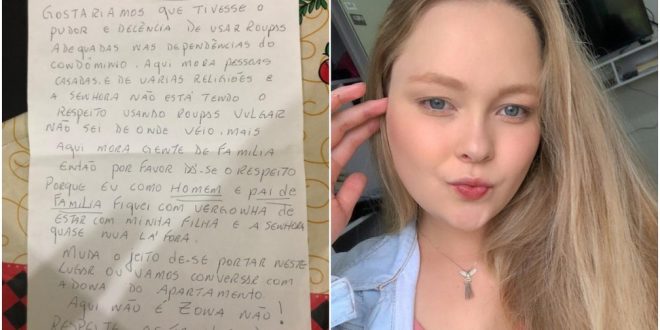 GOSTARIAMOS QUE TIVESSE O
PUDOR E DECÊNCIA DE USAR ROUPAS
ADEQUADAS NAS DEPENDÊNCIAS DO
CONDOMINIO. AQUI MORA PESSOAS
CASADAS, E DE VARIAS RELIGIÕES E
A SENHORA NÃO ESTÁ TENDO O
RESPEITO USANDO ROUPAS VULGAR
NÃO SEI DE ONDE VEIO, MAIS
AQUI MORA GENTE DE FAMILIA
ENTÃO POR FAVOR DÊ-SE O RESPEITO
PORQUE EU COMO HOMEM E PAI DE
FAMILIA FIQUEI COM VERGONHA DE
ESTAR COM MINHA FILHA E A SENHORA
QUASE NUA LÁ FORA.
MUDA O JEITO DE-SE PORTAR NESTE
LUGAR OU VAMOS CONVERSAR COM
A DONA DO APARTAMENTO.
AQUI NÃO É ZONA NÃO!
RESPEITE